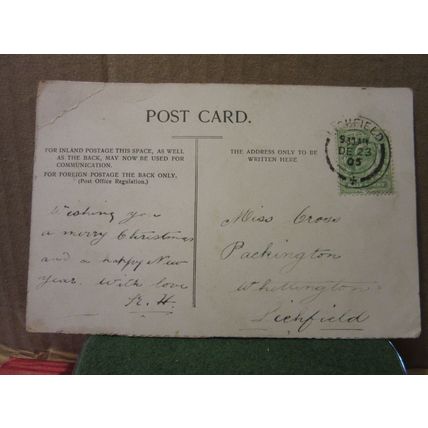 POST CARD.
FOR INLAND POSTAGE THIS SPACE, AS WELL
AS THE BACK, MAY NOW BE USED FOR
COMMUNICATION.
FOR FOREIGN POSTAGE THE BACK ONLY.
(Post Office Regulation.)
THE ADDRESS ONLY TO BE
WRITTEN HERE
LICHFIELD
DE 23
05
Wishing you
a merry Christmas
and a happy New
year. With love
Miss Cross
Packington
Whittington
Lichfield